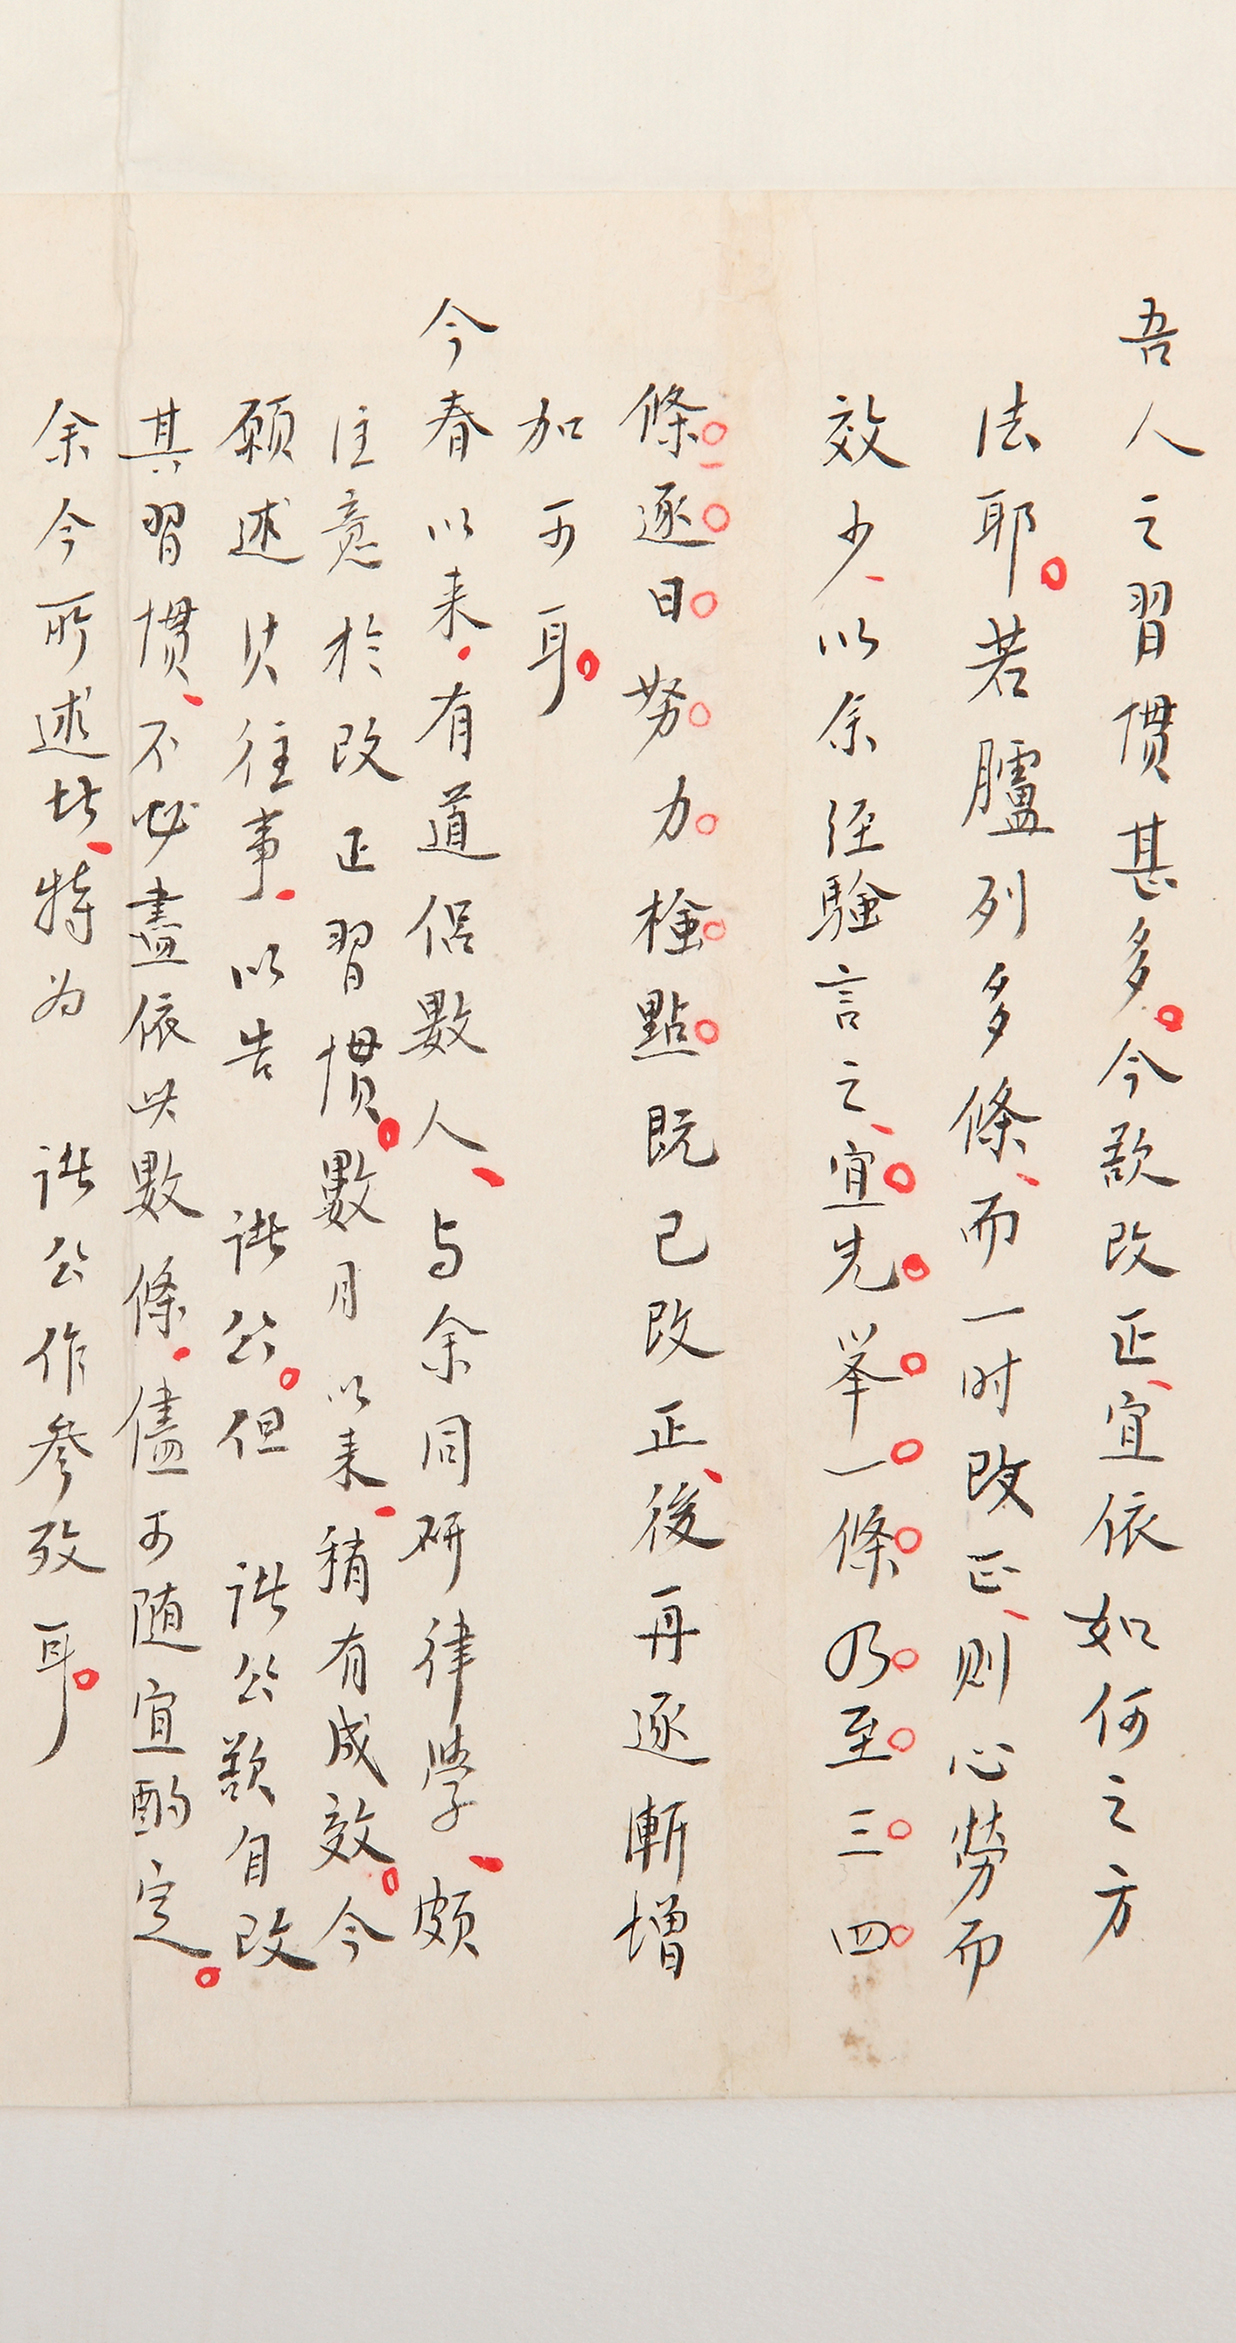 吾人之習慣甚多。今欲改正、宜依如何之方
法耶。若臚列多條、而一时改正、則心勞而
效少、以余経驗言之、宜先举一條乃至三四
條逐日努力檢點既已改正、後再逐漸增
加可耳。
今春以来、有道侶數人、与余同研律學、頗
注意於改正習慣。數月以来、稍有成效。今
願述其往事、以告 諸公。但 諸公欲自改
其習慣、不必盡依此數條、儘可随宜酌定。
余今所述此、特为 諸公作參攷耳。